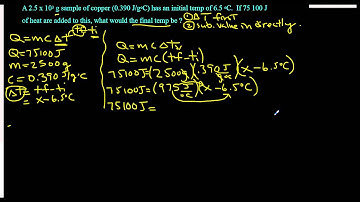 A 2.5 x 10³ g sample of copper (0.390 J/g·C) has an initial temp of 6.5 °C. If 75 100 J
of heat are added to this, what would the final temp be ? ① ΔT first
② sub. value in directly.
tf-ti
Q = mcΔT
Q = 75100J
m = 2500g
C = 0.390 J/g·C
ΔT = tf-ti
= x-6.5°C
Q = mcΔT
Q = mC(tf-ti)
75100J = (2500g)(.390J/g°C)(x-6.5°C)
75100J = (975J/°C)(x-6.5°C)
75100J =